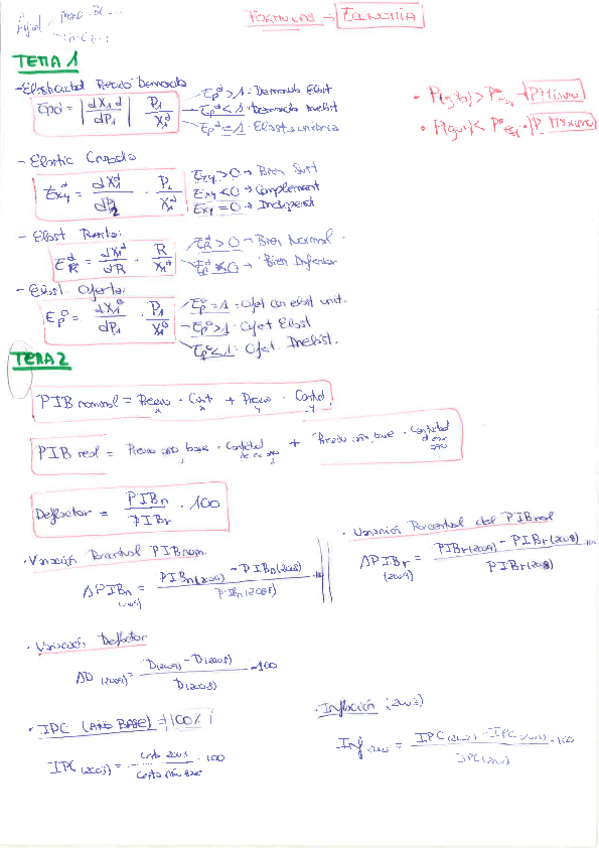 FORMULAS → ECONOMÍA
TEMA 1
- Elasticidad Precio Demanda
Epd = | dX1d / dP1 | · P1 / X1d
Epd > 1: Demanda Elást
Epd < 1: Demanda Inelást
Epd = 1: Elast. unitaria
→ P Mínimo
→ P Máximo
- Elastic Cruzada
Exyd = dX1d / dP2 · P2 / X1d
Exy > 0 → Bien Sust
Exy < 0 → Complement
Exy = 0 → Independ
- Elast Renta:
ERd = dX1d / dR · R / X1d
ERd > 0 → Bien Normal.
ERd < 0 → Bien Inferior
- Elast. Oferta:
Epo = dX1o / dP1 · P1 / X1o
Epo = 1 = Ofert con elast unit.
Epo > 1: Ofert Elast
Epo < 1: Ofert Inelást.
TEMA 2
PIB nominal = Precio x · Cant x + Precio y · Cantid y
PIB real = Precio año base · Cantidad + Precio año base · Cantidad
Deflactor = PIBn / PIBr · 100
· Variación Porcentual PIBnom.
ΔPIBn (2009) = PIBn(2009) - PIBn(2008) / PIBn(2008) · 100
· Variación Porcentual del PIBreal
ΔPIBr (2009) = PIBr(2009) - PIBr(2008) / PIBr(2008) · 100
· Variación Deflactor
ΔD (2009) = D(2009) - D(2008) / D(2008) · 100
· IPC (AÑO BASE) = 100%
IPC (2003) = Cesta 2003 / Cesta año base · 100
· Inflación (2003)